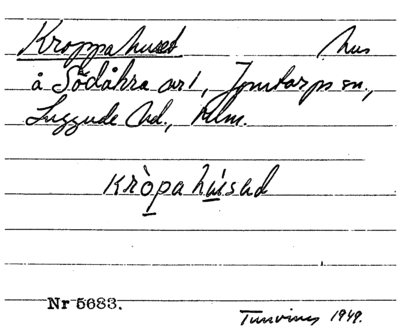 Kroppahuset hus
å Södåkra nr 1, Jonstorps sn.,
Luggude hd., Mlm.
Kròpahúsəd
Nr 5683.
1949.